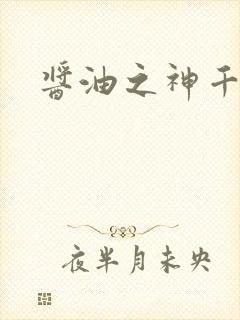 醬油之神千
夜半月未央